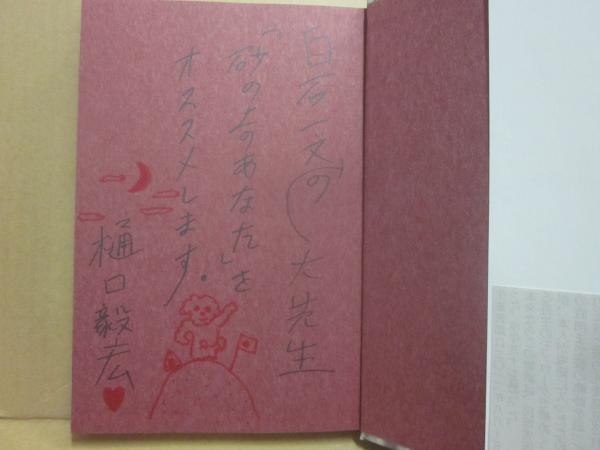 白石一文の大先生
「砂の上のあなた」を
オススメします。
樋口毅宏